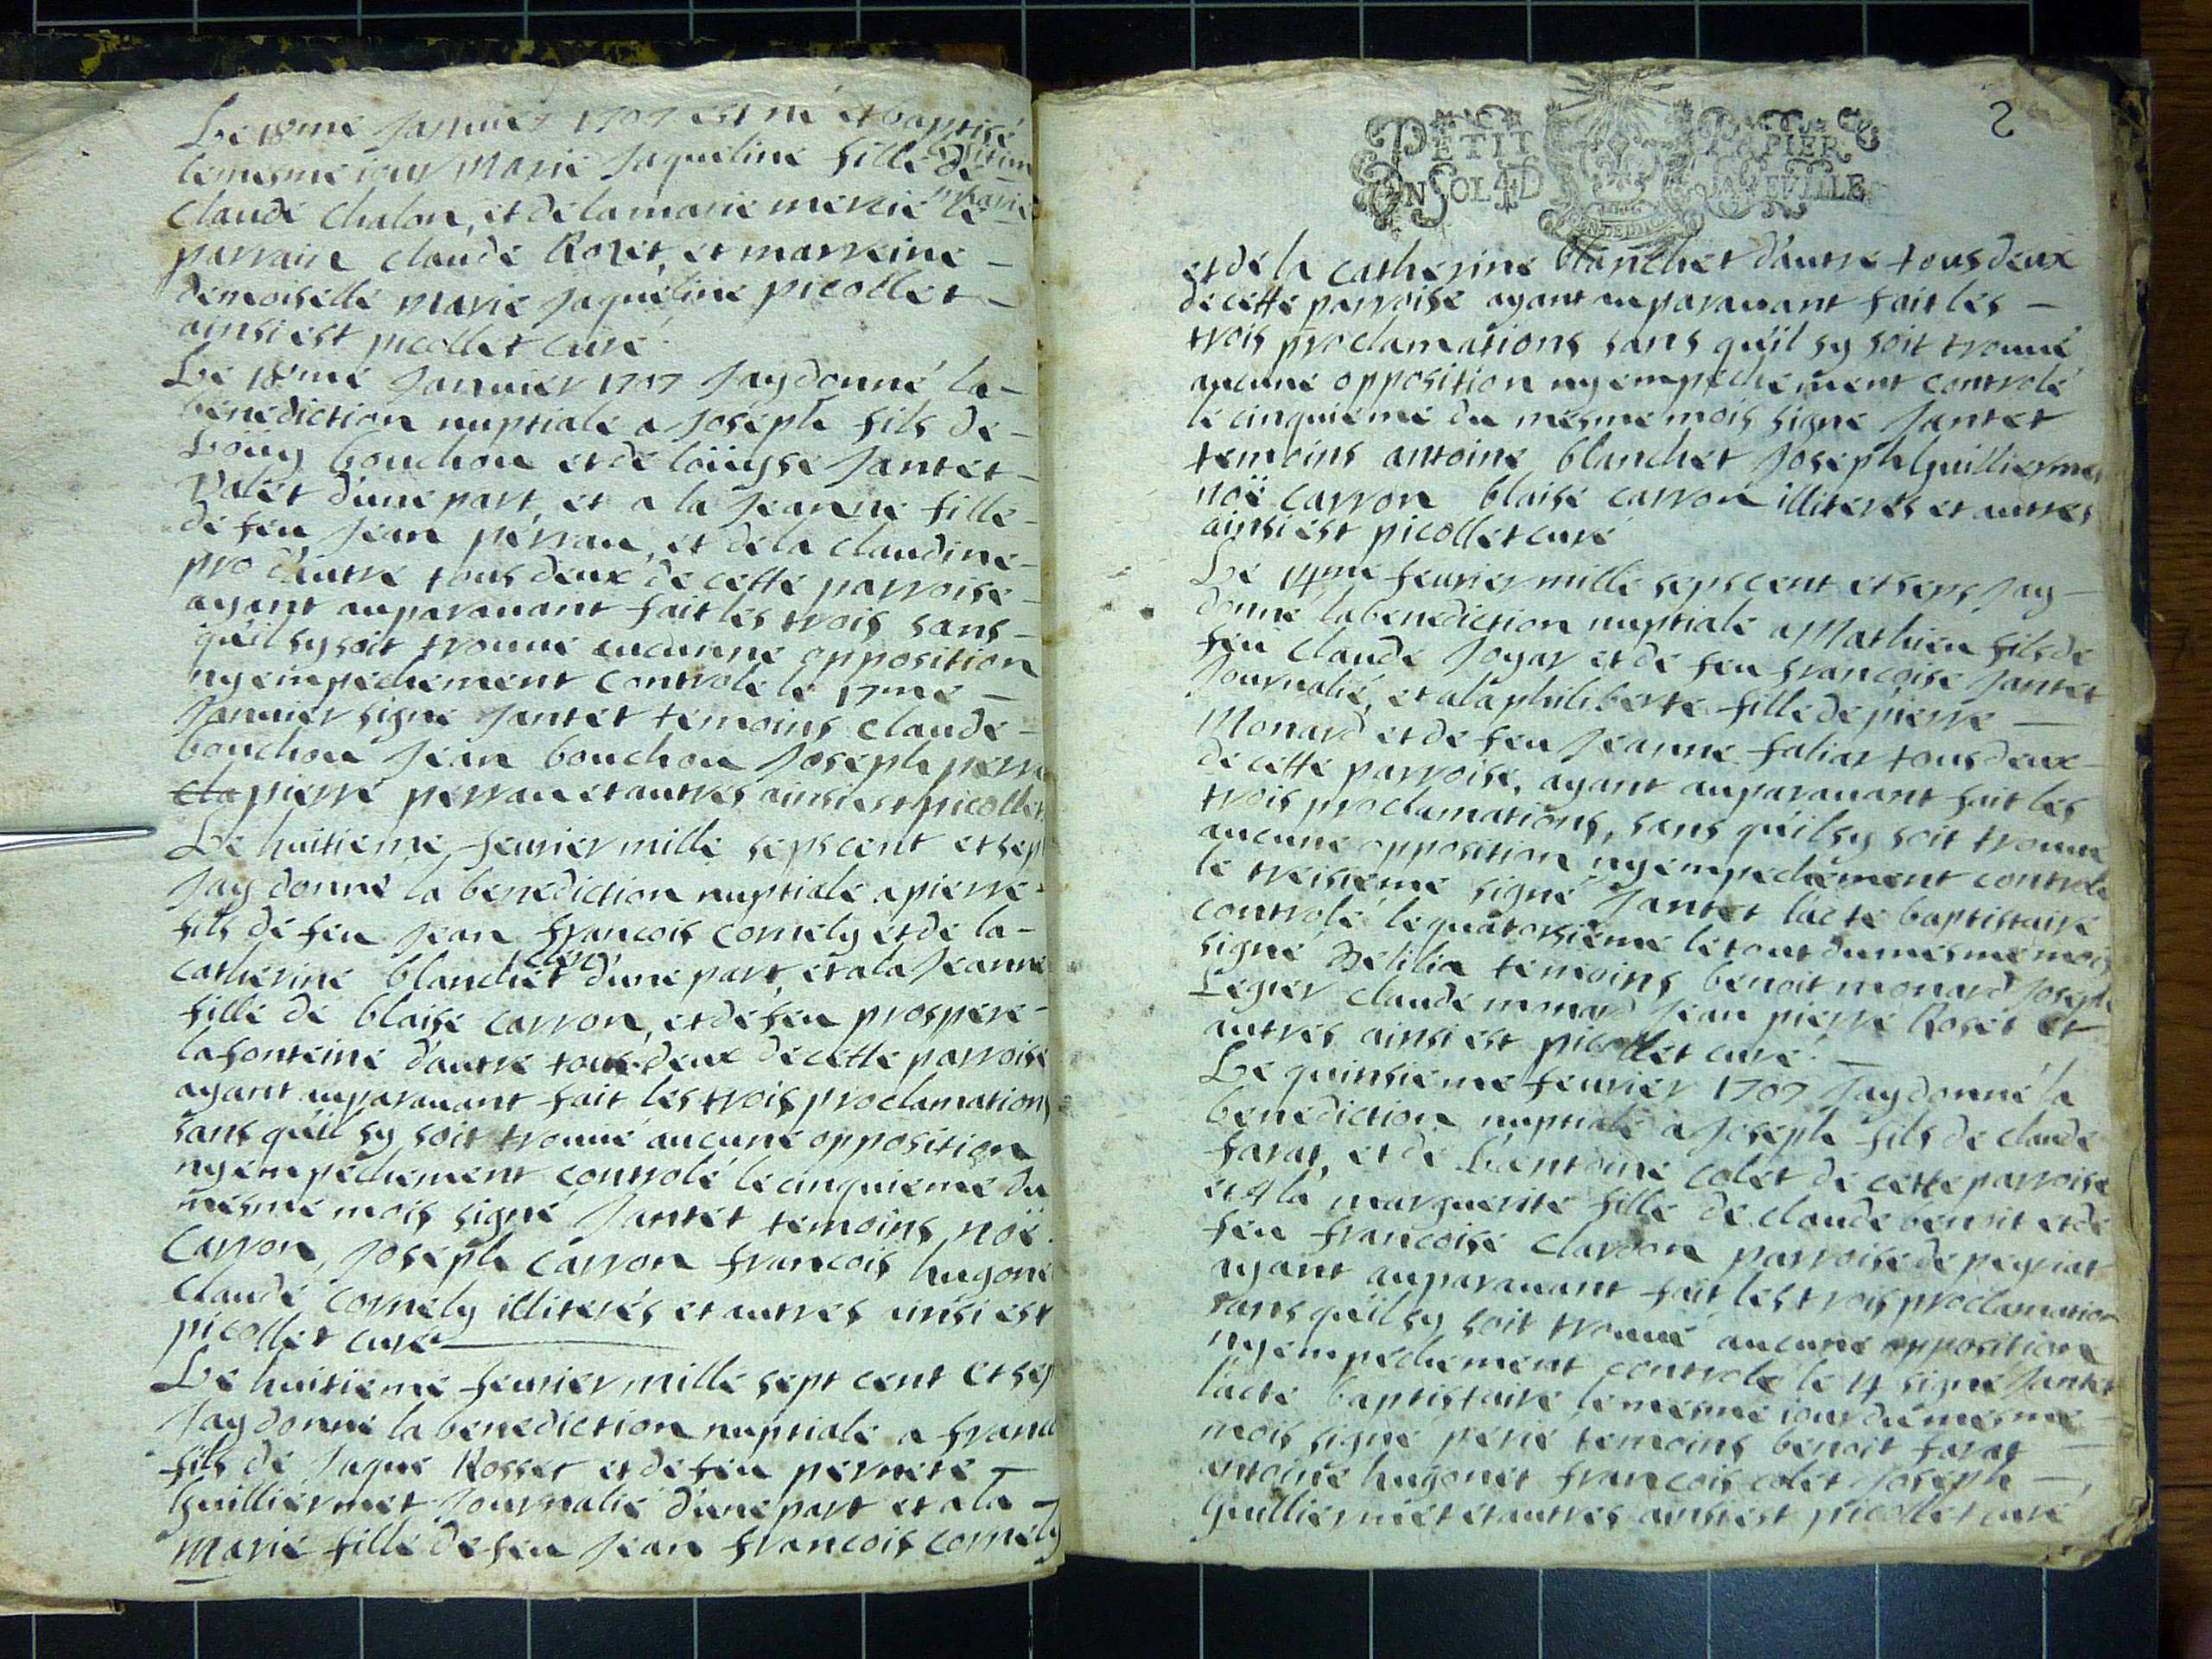 Le 18me Januier 1707 est né et baptisé
le mesme iour Marie Jaqueline fille de
Claude Chalon, et de la marie mercié le
parrain Claude Rozet, et marreine
demoiselle Marie Jaqueline picollet
ainsi est picollet curé
Le 18me Januier 1707 Jay donné la
benediction nuptiale a Joseph fils de
Loüy bouchou et de loüyse Jantet
Valet d'une part, et a la Jeanne fille
de feu Jean perrau, et de la Claudine
pro d'autre tous deux de cette parroise
ayant auparauant fait les trois sans
qu'il sy soit trouué aucune opposition
ny empechement controlé le 17me
Januier signé Jantet temoins Claude
bouchou Jean bouchou Joseph perr
cla pierre perrau et autres ainsi est picollet
Le huitieme feurier mille sepscent et sep
Jay donné la benediction nuptiale a pierre
fils de feu Jean francois cornely et de la
catherine blanchet d'une part, et a la Jeanne
fille de blaise carron, et de feu prospere
lafonteine d'autre tous deux de cette parroise
ayant auparauant fait les trois proclamations
sans qu'il sy soit trouué aucune opposition
ny empechement controlé le cinquieme du
mesme mois signé Jantet temoins noë
Carron, Joseph Carron francois hugone
Claude Cornely illiterés et autres ainsi est
picollet curé
Le huitieme feurier mille sept cent et sep
Jay donné la benediction nuptiale a franc
fils de Jaque Rosset et de feu pernete
Guilliermet Journalié d'une part et a la
Marie fille de feu Jean francois cornely
2
PETIT PAPIER
UN SOL 4D LA FEUILLE
et de la catherine blanchet d'autre tous deux
de cette parroise ayant auparauant fait les
trois proclamations sans qu'il sy soit trouué
aucune opposition ny empechement controlé
le cinquieme du mesme mois signé Jantet
temoins antoine blanchet Joseph Guilliermet
noë carron blaise carron illiterés et autres
ainsi est picollet curé
Le 14me feurier mille sepscent et sept Jay
donné la benediction nuptiale a Mathieu fils de
feu Claude Joyar et de feu francoise Jantet
Journalié, et a la philiberte fille de pierre
Monard et de feu Jeanne faliar tous deux
de cette parroise, ayant auparauant fait les
trois proclamations, sans qu'il sy soit trouué
aucune opposition ny empechement controlé
le treisieme signé Jantet l'acte baptistaire
controlé le quatorsieme le tout du mesme mois
signé Delilia temoins benoit monard Joseph
Legier Claude monard Jean pierre Roset et
autres ainsi est picollet curé
Le quinsieme feurier 1707 Jay donné la
benediction nuptiale a Joseph fils de Claude
farat, et de L'antoine colet de cette parroise
et a la marguerite fille de Claude benoit et de
feu francoise Claron parroise de pegriat
ayant auparauant fait les trois proclamation
sans qu'il sy soit trouué aucune opposition
ny empechement controlé le 14 signé Jantet
l'acte baptistaire le mesme iour du mesme
mois signé perié temoins benoit farat
antoine hugonet francois colet Joseph
Guilliermet et autres ainsi est picollet curé